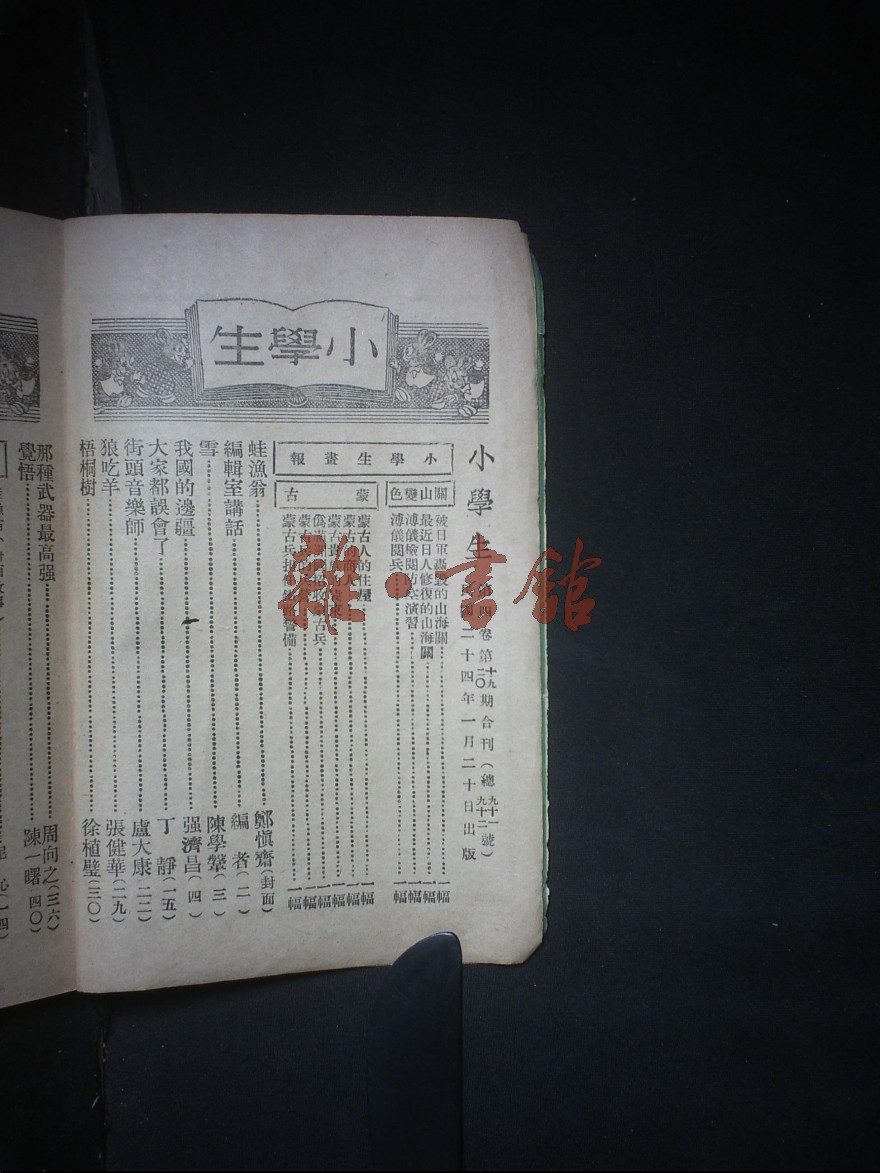 小學生
小學生 第四卷第十九二〇期合刊(總九十一九十二號)
民國二十四年一月二十日出版
小學生畫報
關山變色
被日軍轟毀的山海關 一幅
最近日人修復的山海關 一幅
溥儀檢閱防空演習 一幅
溥儀閱兵 一幅
蒙古
蒙古人的住屋 一幅
蒙古的商人 一幅
一幅
一幅
一幅
一幅
蛙漁翁 鄭愼齋(封面)
編輯室講話 編者(二)
雪 陳學鞶(三)
我國的邊疆 强濟昌(四)
大家都誤會了 丁靜(一五)
街頭音樂師 盧大康(二二)
狼吃羊 張健華(二九)
梧桐樹 徐植璧(三〇)
那種武器最高强 周向之(三六)
覺悟 陳一曙(四〇)
雜·書館